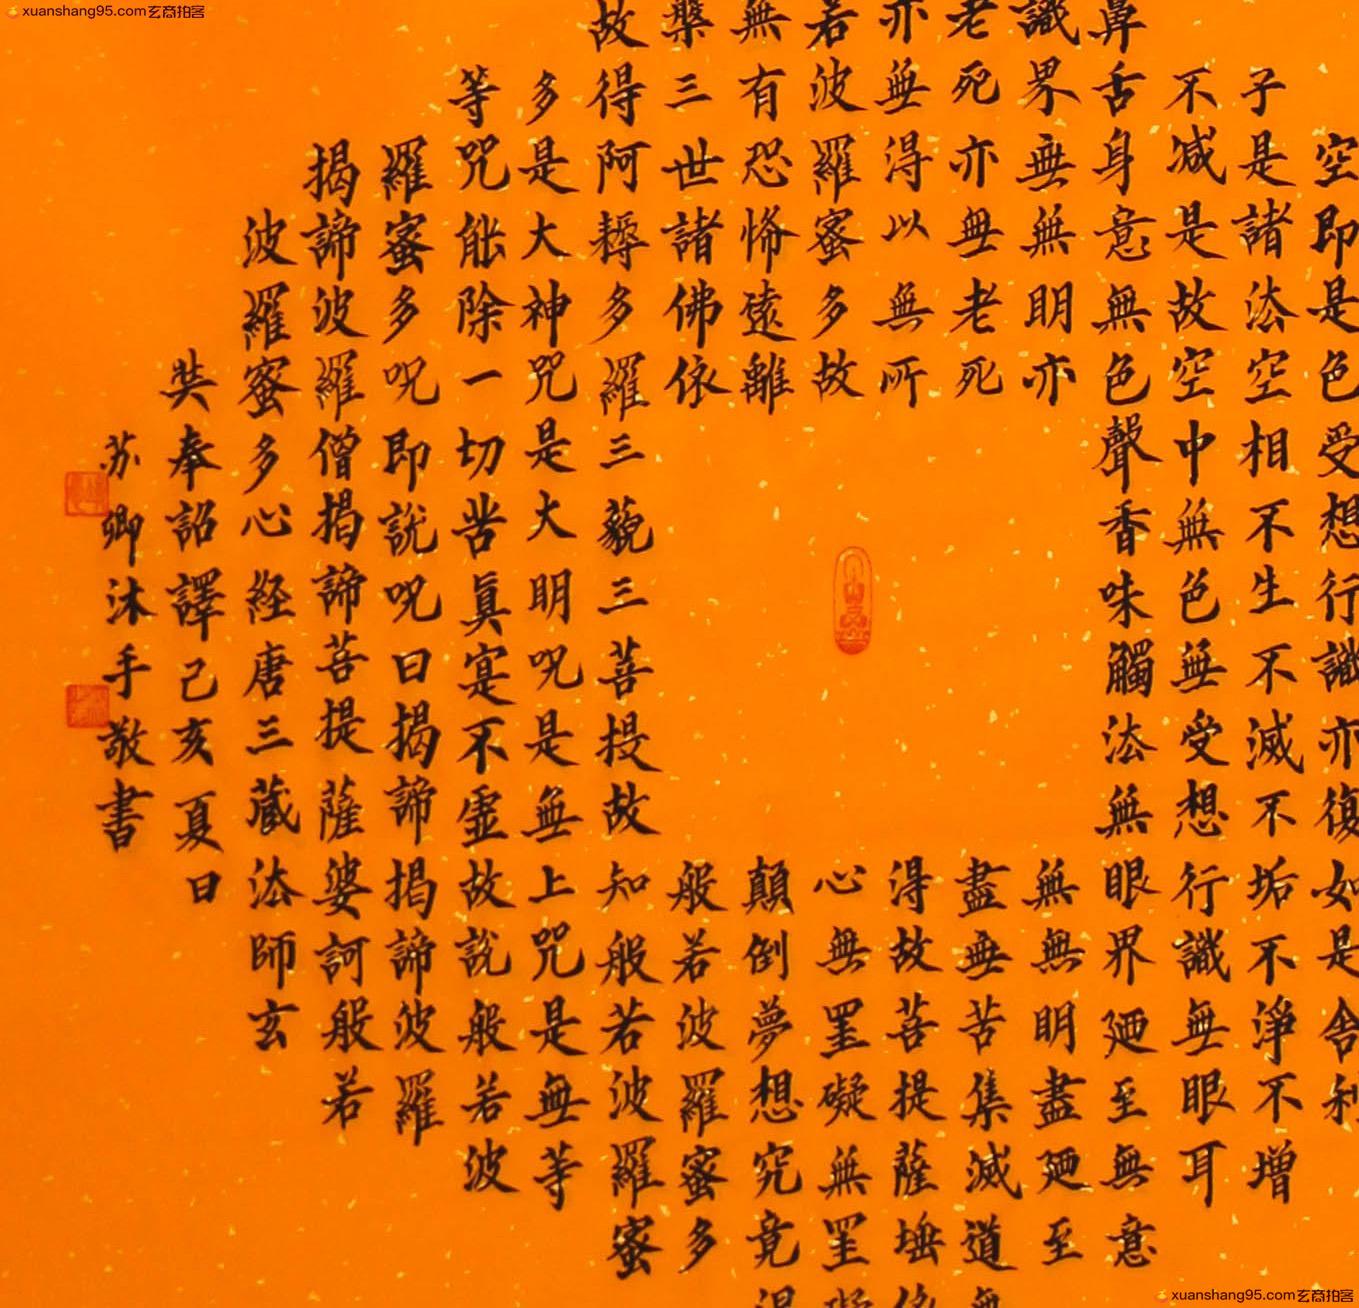 xuanshang95.com玄商拍客
空即是色受想行識亦復如是舍利
子是諸法空相不生不滅不垢不淨不增
不減是故空中無色無受想行識無眼耳
鼻舌身意無色聲香味觸法無眼界廼至無意
識界無無明亦
無無明盡廼至
老死亦無老死
盡無苦集滅道無
亦無得以無所
得故菩提薩埵依
若波羅蜜多故
心無罣礙無罣礙
無有恐怖遠離
顛倒夢想究竟涅
槃三世諸佛依
般若波羅蜜多
故得阿耨多羅三藐三菩提故知般若波羅蜜
多是大神咒是大明呪是無上咒是無等
等咒能除一切苦真寔不虛故説般若波
羅蜜多呪即説呪曰揭諦揭諦波羅
揭諦波羅僧揭諦菩提薩婆訶般若
波羅蜜多心経唐三蔵法師玄
奘奉詔譯己亥夏日
苏卿沐手敬書
xuanshang95.com玄商拍客